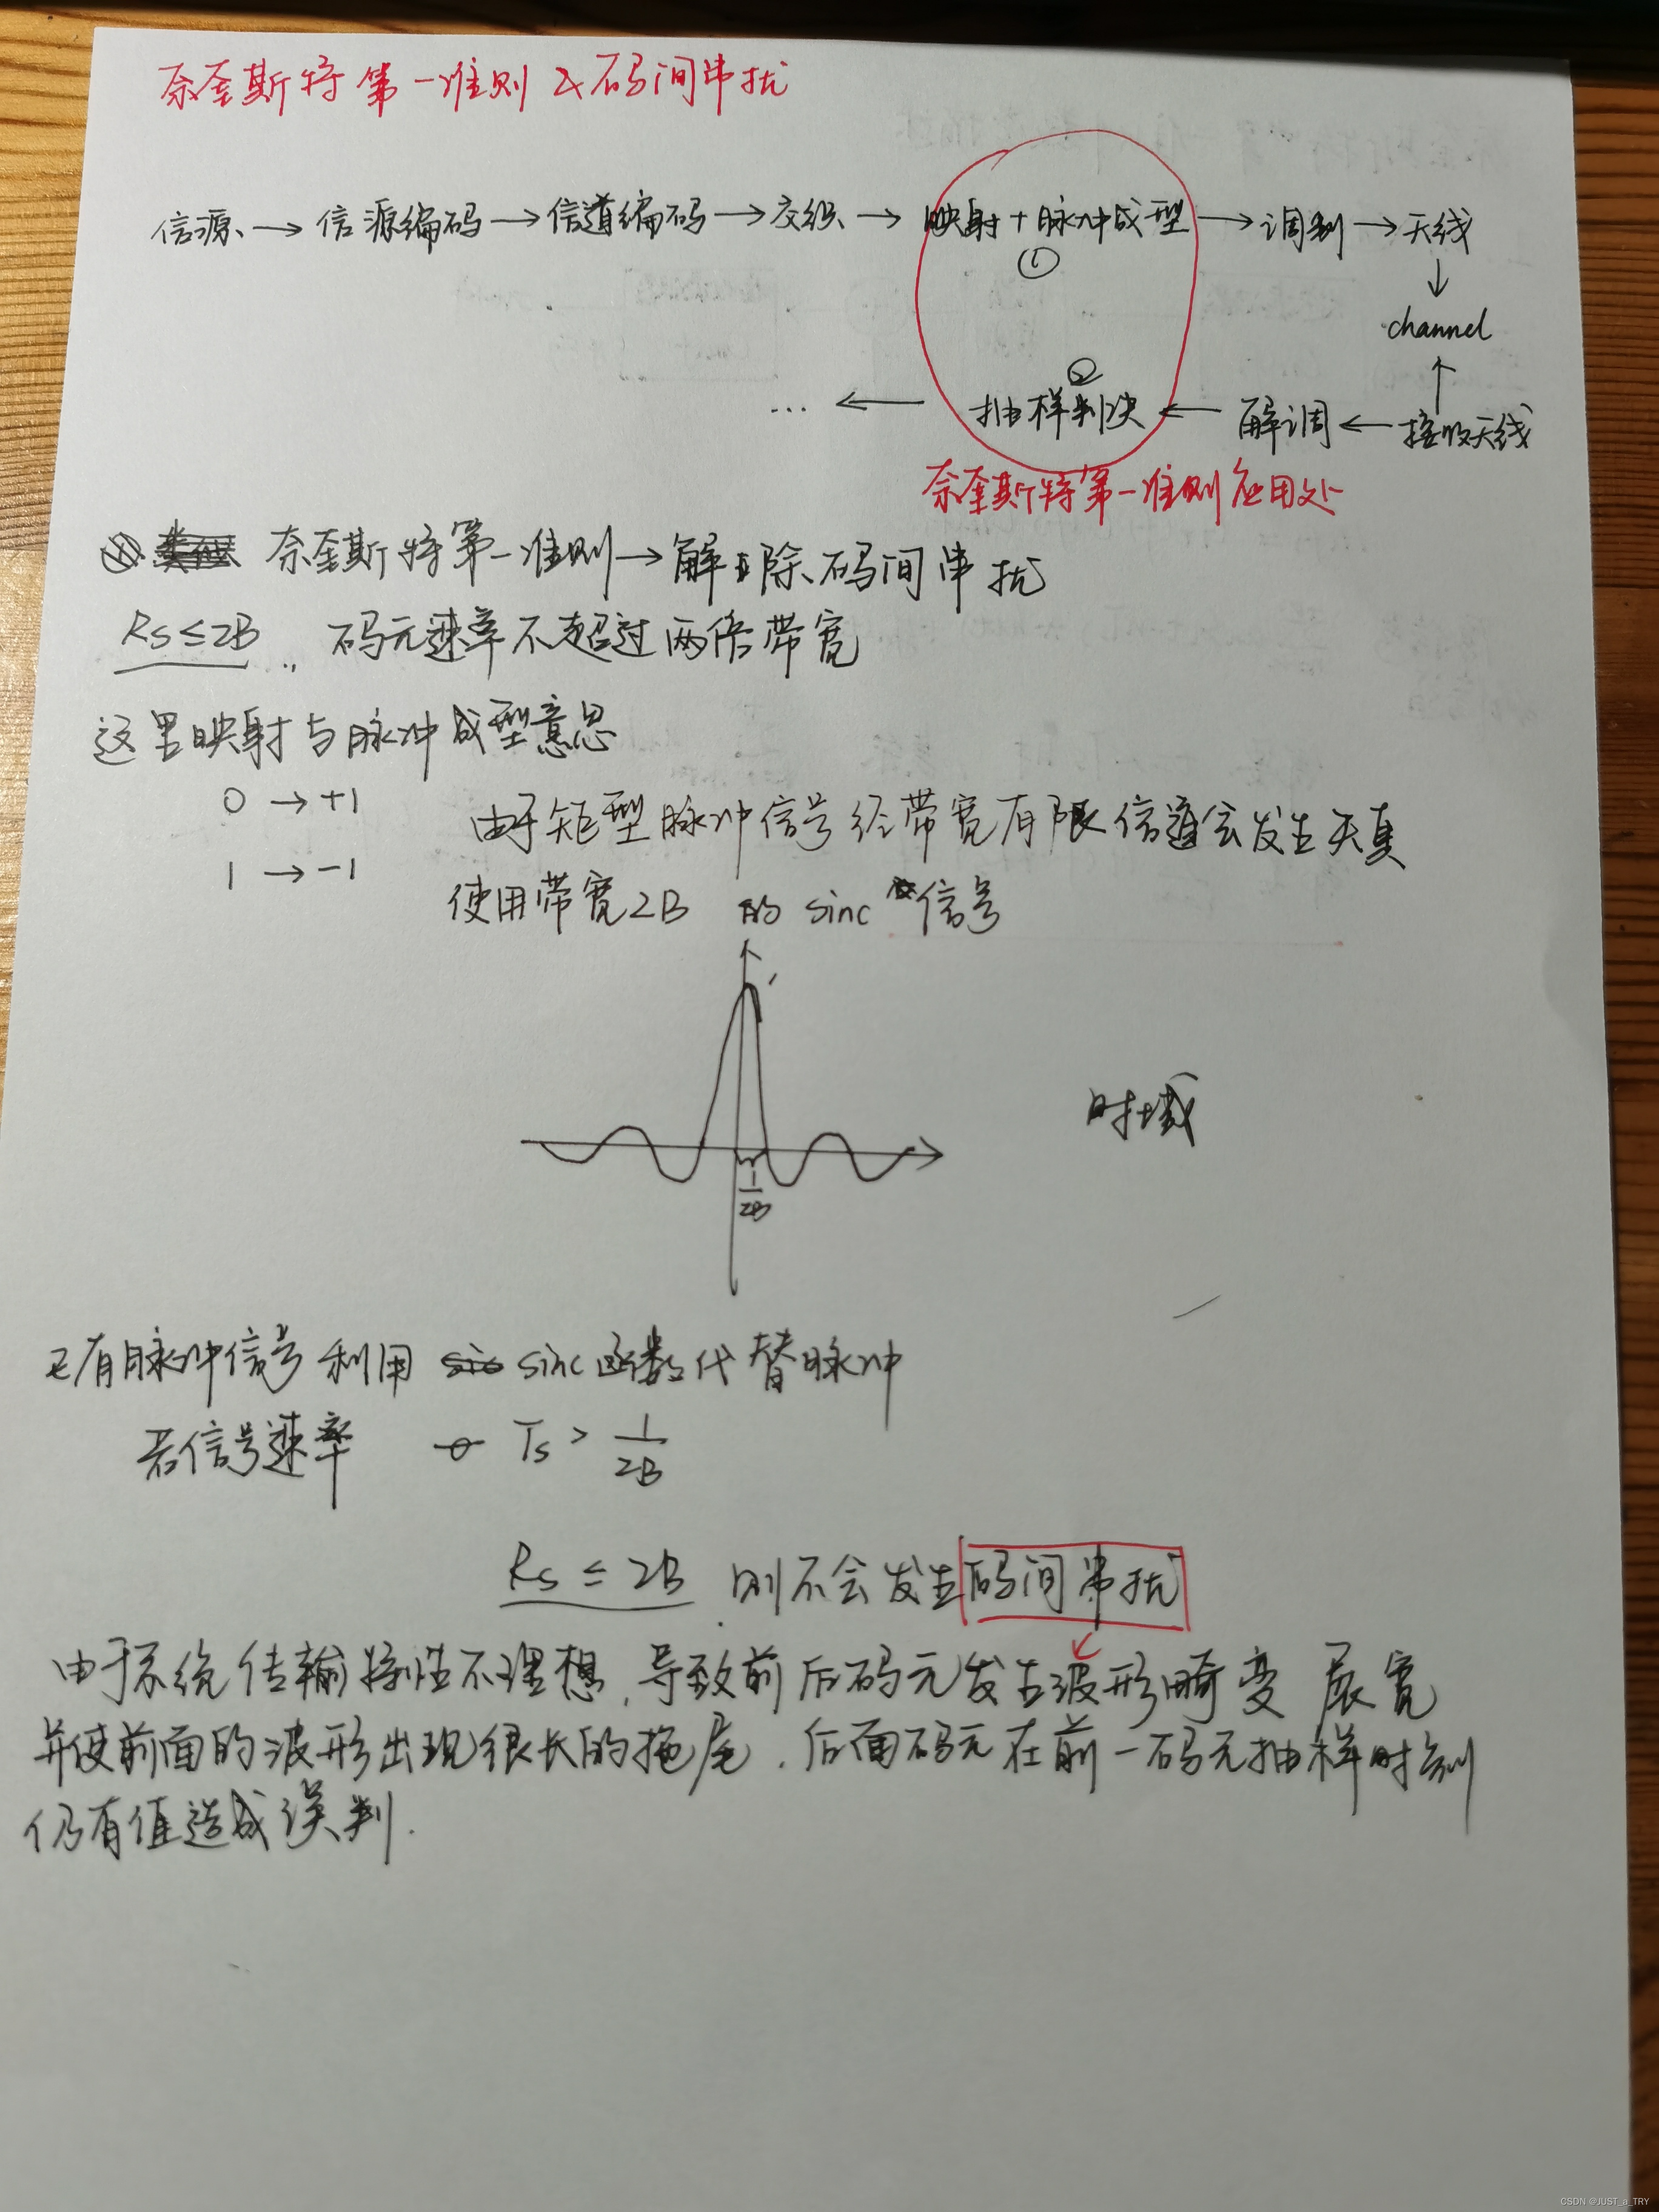 奈奎斯特第一准则及码间串扰
信源 → 信源编码 → 信道编码 → 交织 → 映射 + 脉冲成型 → 调制 → 天线
①
↓
channel
↑
②
... ← 抽样判决 ← 解调 ← 接收天线
奈奎斯特第一准则应用处
奈奎斯特第一准则 → 解决消除码间串扰
Rs ≤ 2B 码元速率不超过两倍带宽
这里映射与脉冲成型意思
0 → +1 由于矩型脉冲信号经带宽有限信道会发生失真
1 → -1
使用带宽2B 的 sinc 信号
时域
1/2B
已有脉冲信号 利用 sinc 函数代替脉冲
若信号速率 Ts > 1/2B
Rs ≤ 2B 则不会发生码间串扰
由于系统传输特性不理想,导致前后码元发生波形畸变 展宽
并使前面的波形出现很长的拖尾,后面码元在前一码元抽样时刻
仍有值造成误判.
CSDN @JUST_a_TRY